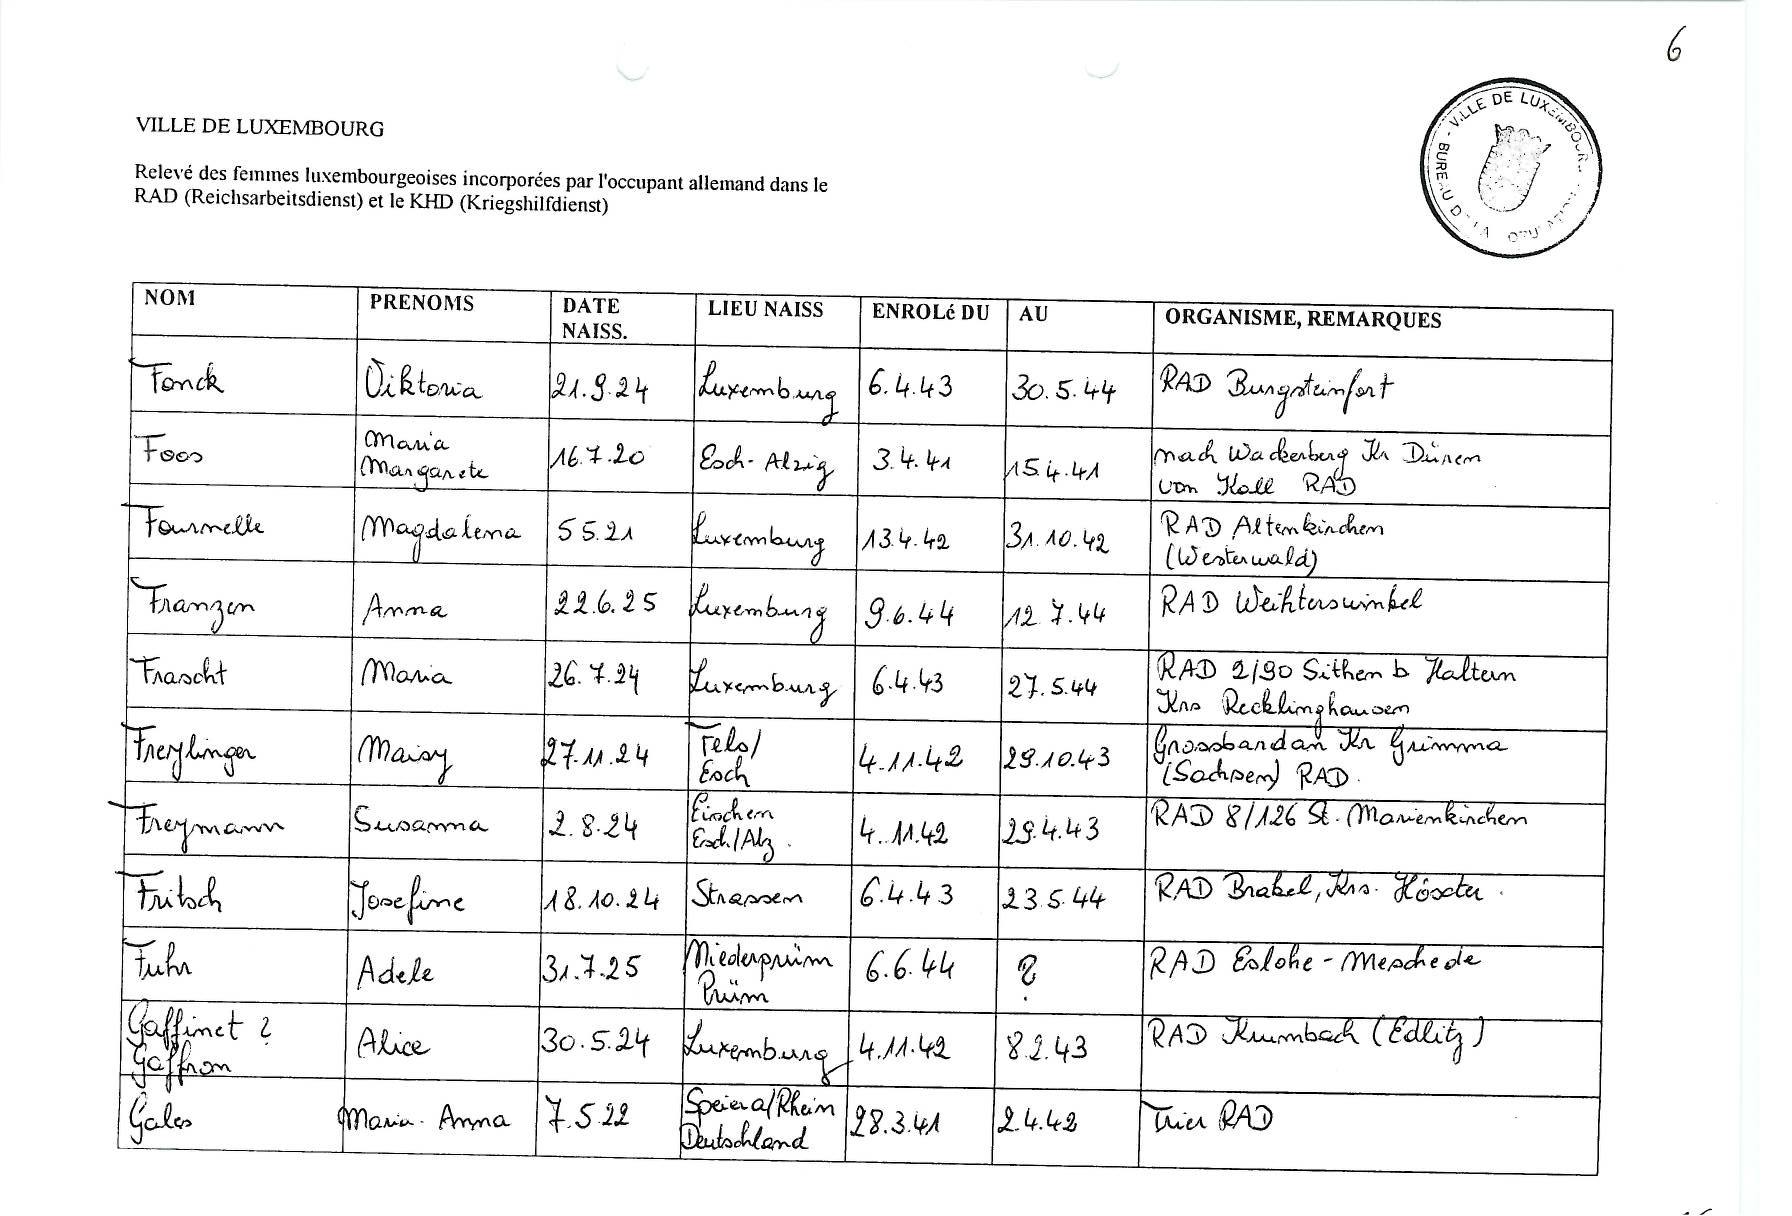 6
VILLE DE LUXEMBOURG
VILLE DE LUXEMBOURG
Relevé des femmes luxembourgeoises incorporées par l'occupant allemand dans le
RAD (Reichsarbeitsdienst) et le KHD (Kriegshilfdienst)
NOM PRENOMS DATE NAISS. LIEU NAISS ENROLé DU AU ORGANISME, REMARQUES
Fonck Viktoria 21.9.24 Luxemburg 6.4.43 30.5.44 RAD Burgsteinfort
Foos Maria Margarete 16.7.20 Esch-Alzig 3.4.41 15.4.41 nach Wackerberg Kr Düren
von Kall RAD
Fournelle Magdalena 5 5.21 Luxemburg 13.4.42 31.10.42 RAD Altenkirchen
(Westerwald)
Franzen Anna 22.6.25 Luxemburg 9.6.44 12.7.44 RAD Weihterswinkel
Frascht Maria 26.7.24 Luxemburg 6.4.43 27.5.44 RAD 2/90 Sithen b Haltern
Krs Recklinghausen
Freylinger Maisy 27.11.24 Fels/ Esch 4.11.42 29.10.43 Grossbardau Kr Grimma
(Sachsen) RAD.
Freymann Susanna 2.8.24 Eischen Esch/Alz. 4.11.42 29.4.43 RAD 8/126 St. Marienkirchen
Fritsch Josefine 18.10.24 Strassen 6.4.43 23.5.44 RAD Brakel, Krs. Höxter.
Fuhr Adele 31.7.25 Niederprüm Prüm 6.6.44 ? RAD Eslohe - Meschede
Gaffinet ? Gaffron Alice 30.5.24 Luxemburg 4.11.42 8.2.43 RAD Krumbach (Edlitz)
Gales Maria-Anna 7.5.22 Speier a/Rhein Deutschland 28.3.41 2.4.42 Trier RAD